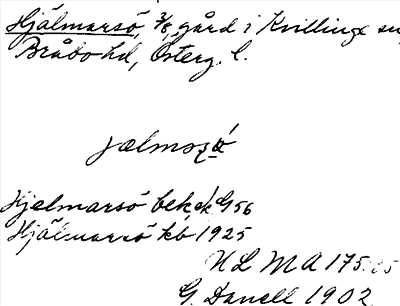 Hjälmarsö, 3/8, gård i Kvillinge sn,
Bråbo hd, Österg. l.
Hjelmarsö bek. G 56
Hjälmarsö kb 1925
ULMA 175:85
G. Danell 1902